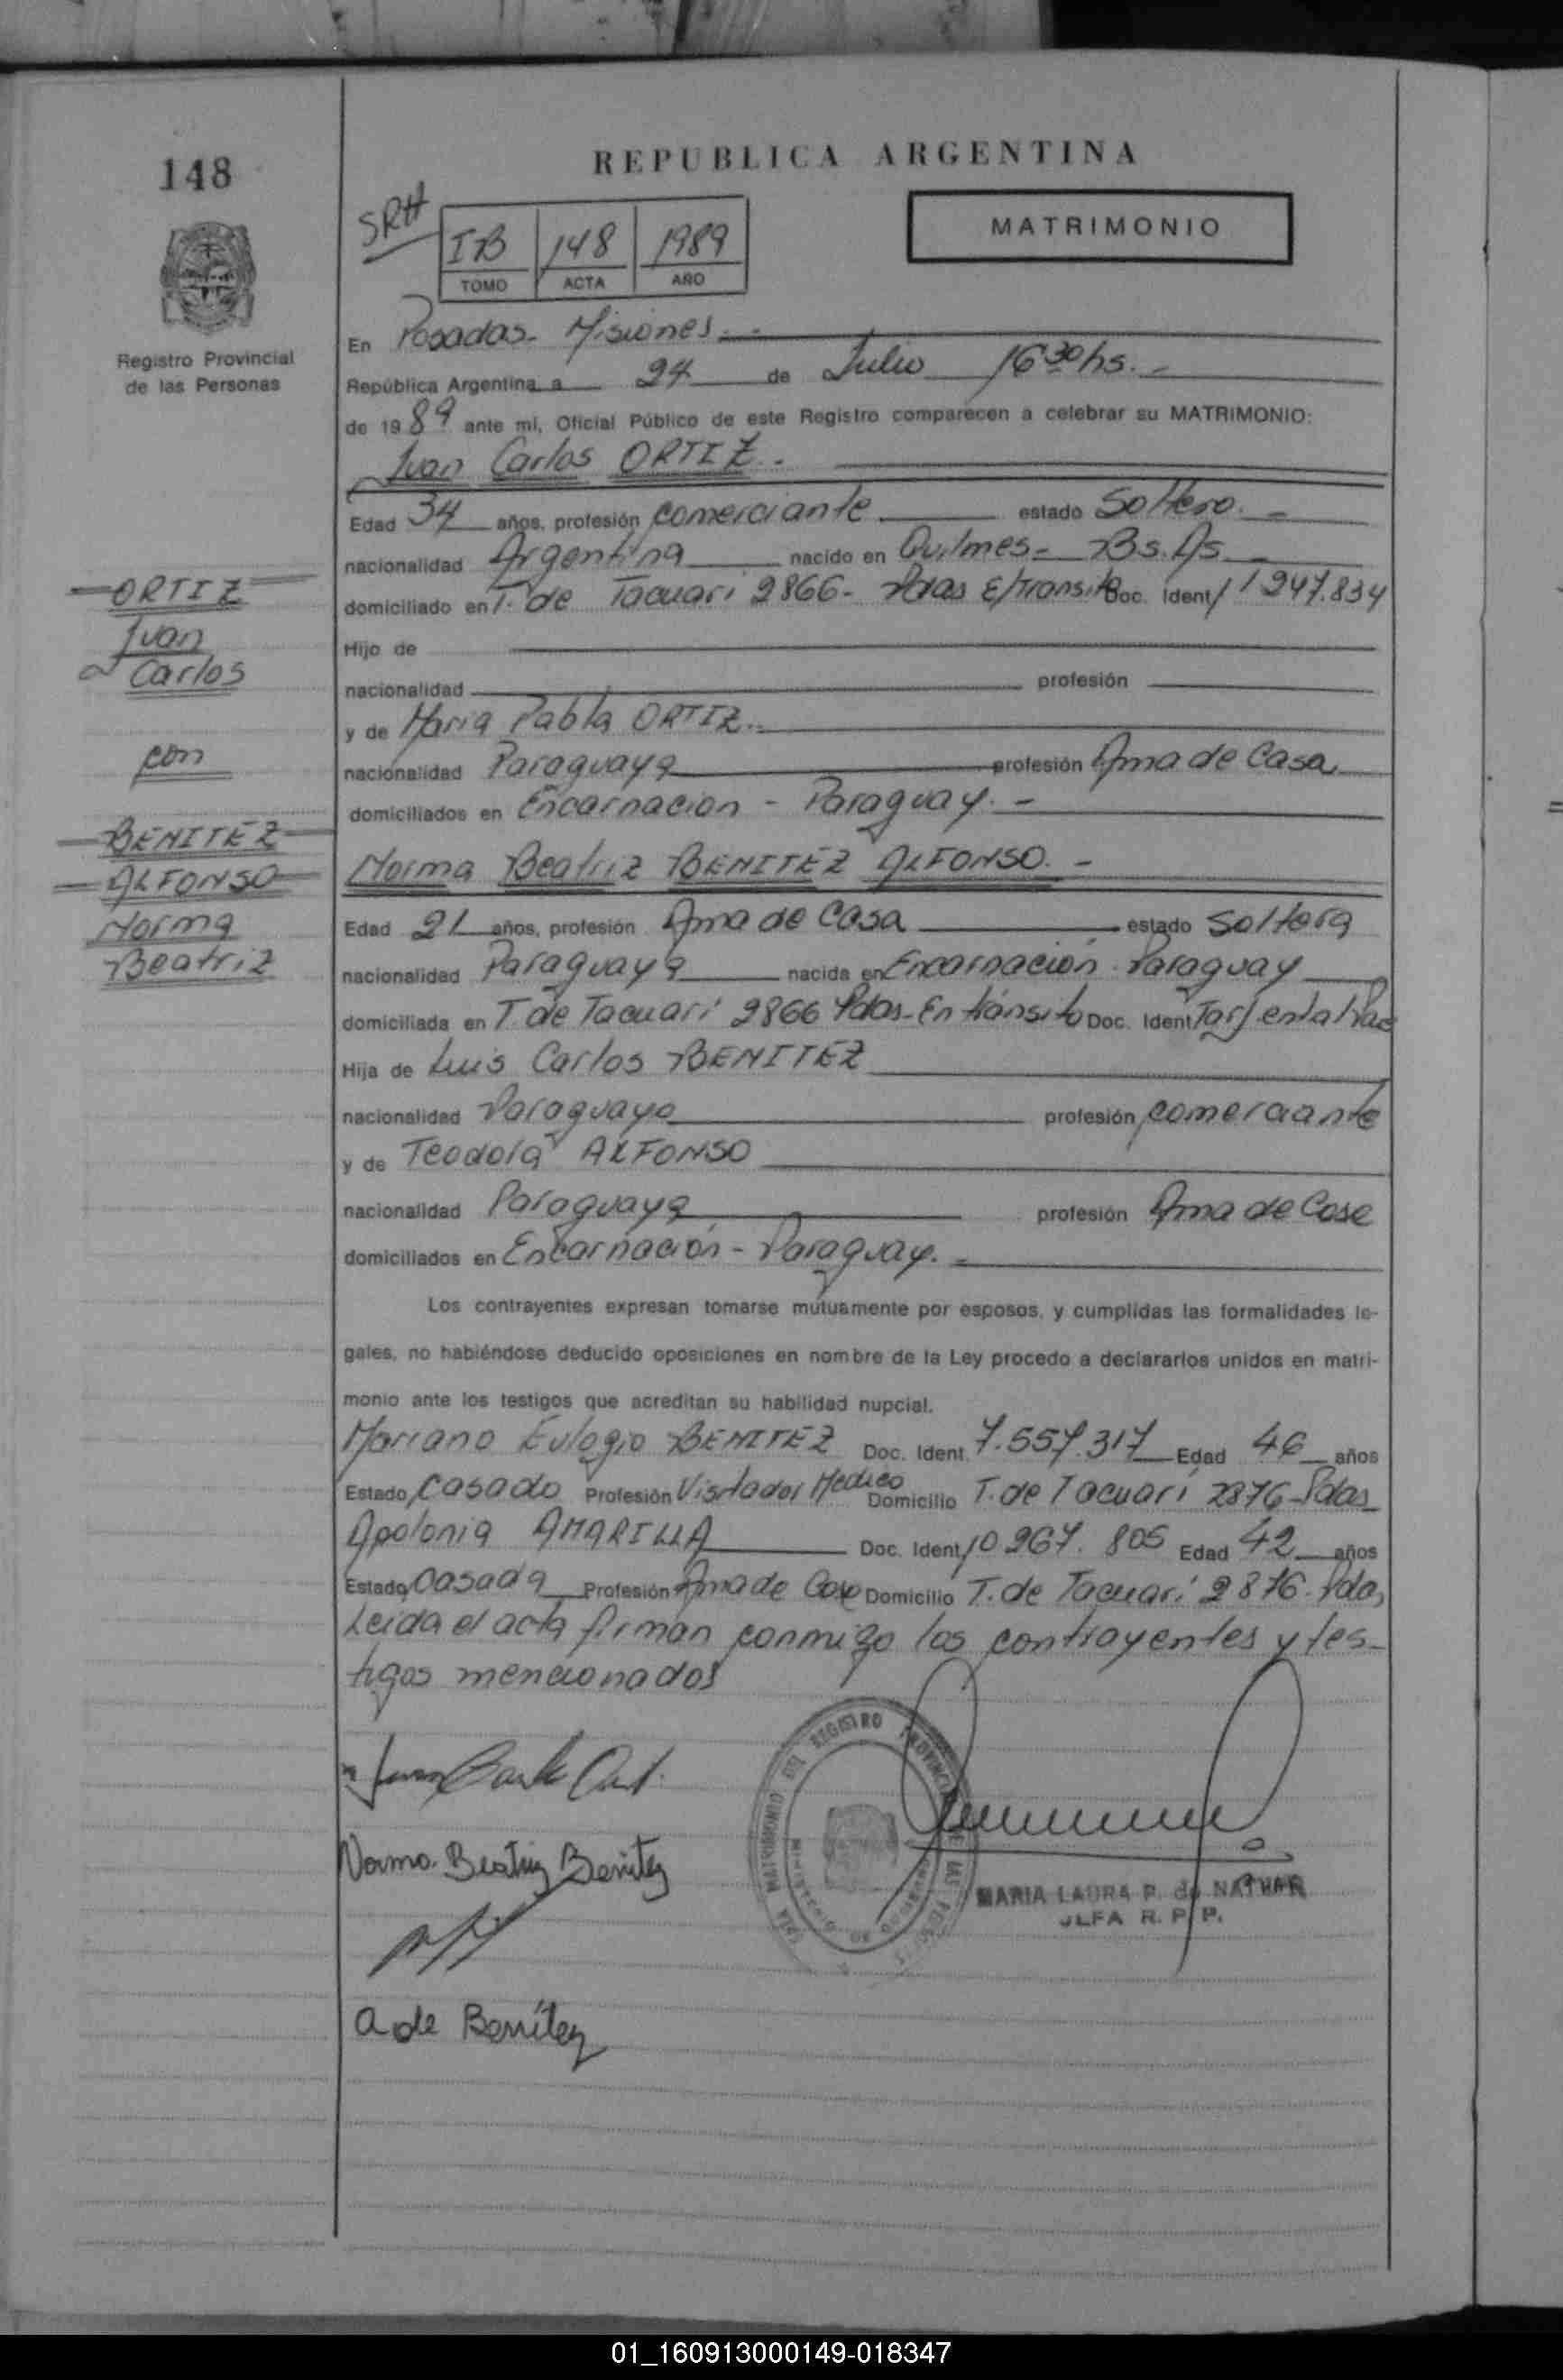 148
REPUBLICA ARGENTINA
SRH
IB 148 1989
TOMO ACTA AÑO
MATRIMONIO
Registro Provincial
de las Personas
En Posadas - Misiones. -
República Argentina a 24 de Julio 16 30 hs. -
de 1989 ante mi, Oficial Público de este Registro comparecen a celebrar su MATRIMONIO:
Juan Carlos ORTIZ. -
Edad 34 años, profesión comerciante estado Soltero. -
nacionalidad Argentina nacido en Quilmes - Bs. As
domiciliado en T. de Tacuari 2866 - Pdas E/transito Doc. Ident 11247.834
Hijo de
nacionalidad profesión
y de Maria Pabla ORTIZ. -
nacionalidad Paraguaya profesión Ama de Casa
domiciliados en Encarnacion - Paraguay. -
Norma Beatriz BENITEZ ALFONSO. -
Edad 21 años, profesión Ama de Casa estado Soltera
nacionalidad Paraguaya nacida en Encarnación - Paraguay
domiciliada en T de Tacuari 2866 Pdas - En tránsito Doc. Ident
Hija de Luis Carlos BENITEZ
nacionalidad Paraguaya profesión comerciante
y de Teodora ALFONSO
nacionalidad Paraguaya profesión Ama de Casa
domiciliados en Encarnación - Paraguay. -
Los contrayentes expresan tomarse mutuamente por esposos, y cumplidas las formalidades le-
gales, no habiéndose deducido oposiciones en nombre de la Ley procedo a declararlos unidos en matri-
monio ante los testigos que acreditan su habilidad nupcial.
Mariano Eulogio BENITEZ Doc. Ident. 7.557.317 Edad 46 años
Estado Casado Profesión Visitador Medico Domicilio T. de Tacuarí 2876 - Pdas
Apolonia AMARILLA Doc. Ident 10 267. 805 Edad 42 años
Estado Casada Profesión Ama de Casa Domicilio T. de Tacuarí 2876 - Pdas
Leida el acta firman conmigo los contrayentes y tes-
tigos mencionados
ORTIZ
Juan
Carlos
con
BENITEZ
ALFONSO
Norma
Beatriz
Juan Carlos Ort.
Norma Beatriz Benitez
A de Benítez
MARIA LAURA P. de
R. P. P.
01_160913000149-018347